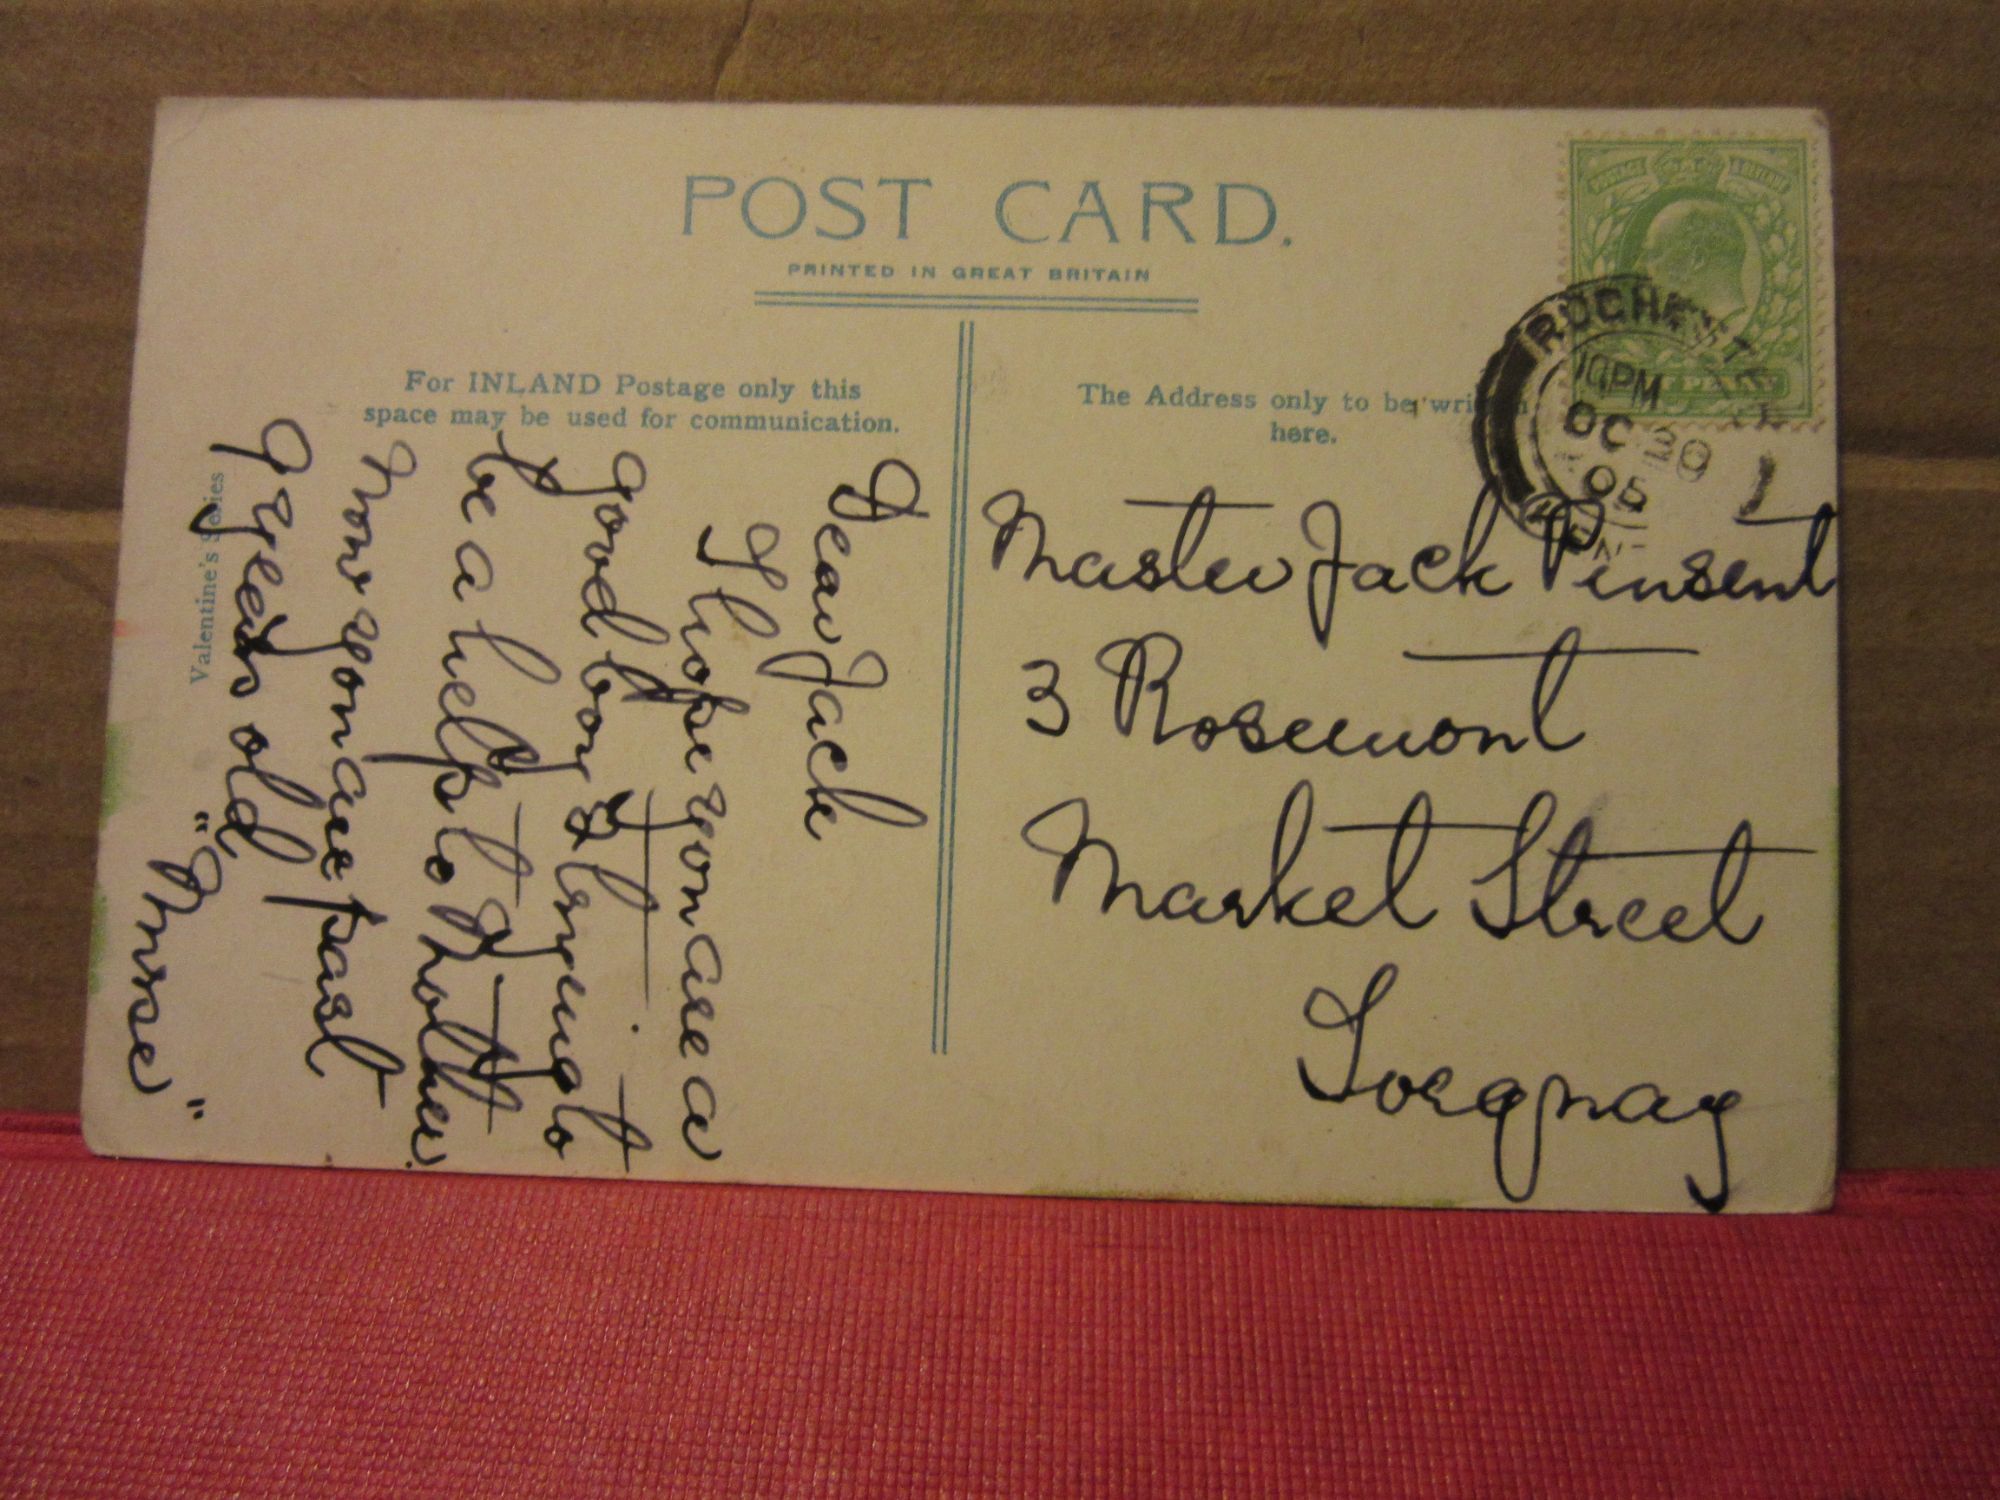 POST CARD.
PRINTED IN GREAT BRITAIN
For INLAND Postage only this
space may be used for communication.
The Address only to be written
here.
Valentine's Series
POSTAGE REVENUE
HALF PENNY
ROCHESTER
10 PM
OC 30
05
KENT
Dear Jack
I hope you are a
good boy & trying to
be a help to Mother
now you are past
years old,
"Nurse"
Master Jack Pinsent
3 Rosemont
Market Street
Torquay